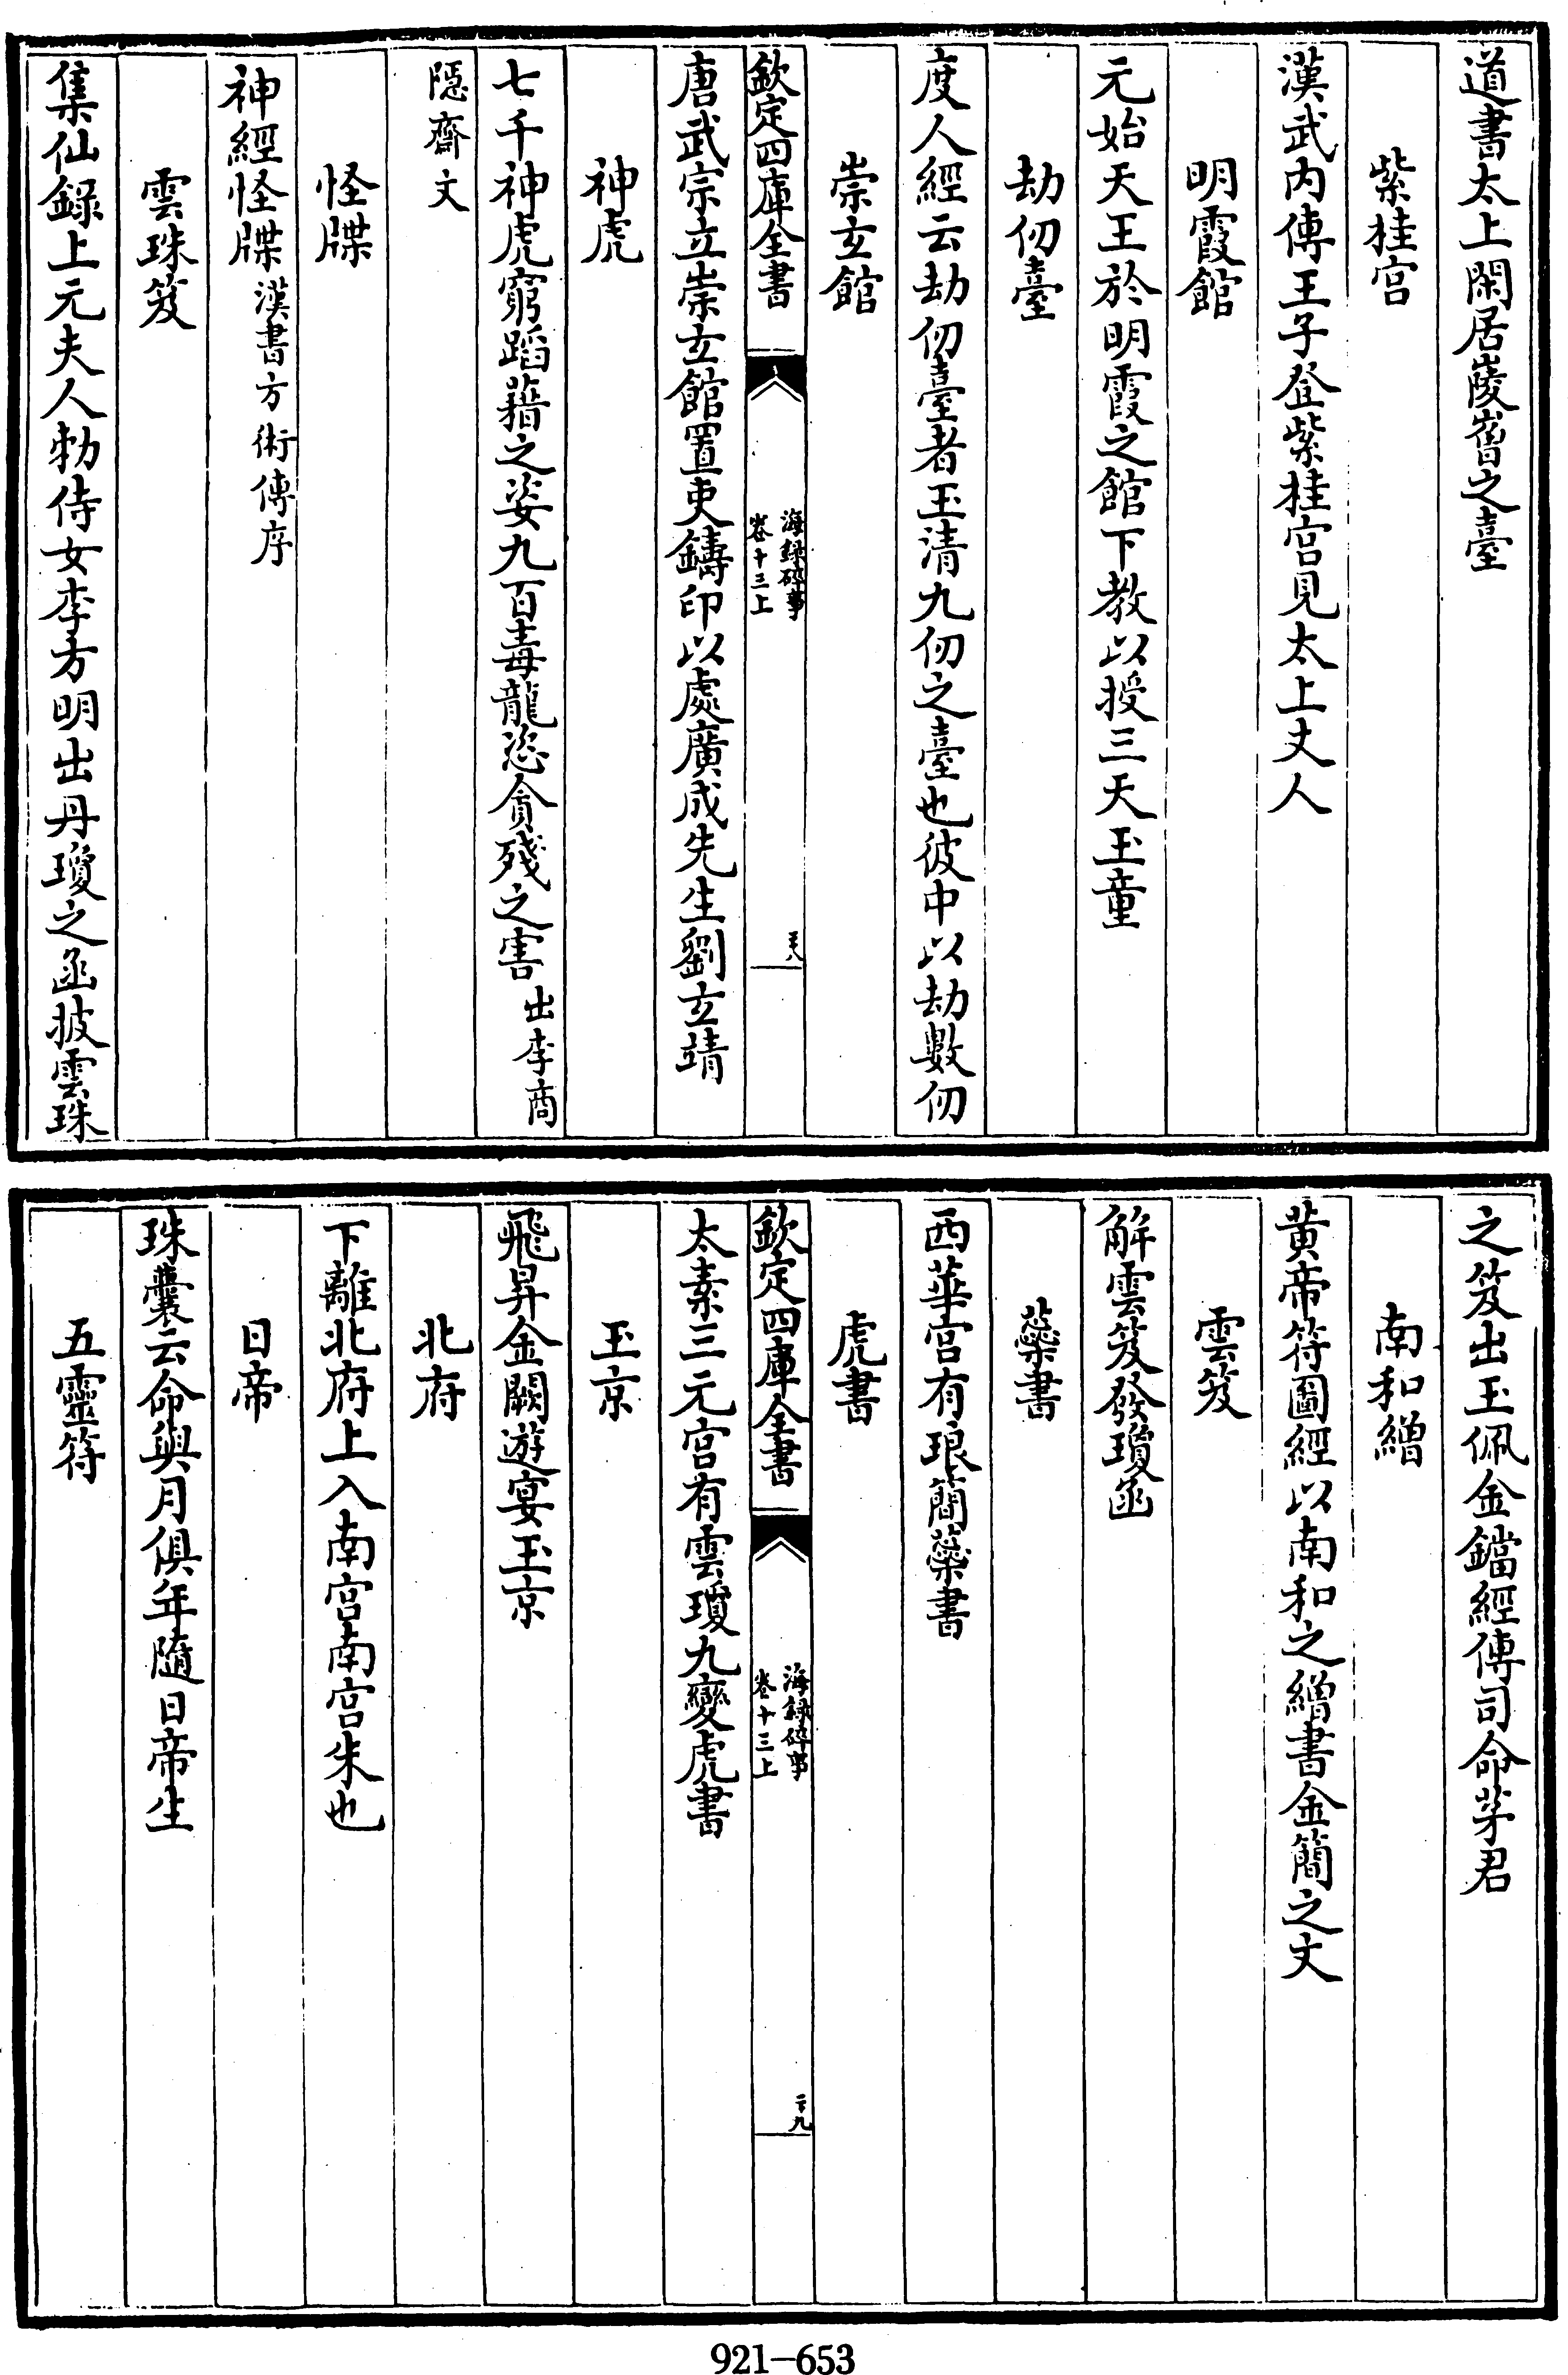 道書太上閑居崚嵱之臺
紫桂宫
漢武内傳王子登紫桂宫見太上丈人
明霞館
元始天王於明霞之館下教以授三天玉童
劫仞臺
度人經云劫仞臺者玉清九仞之臺也彼中以劫數仞
崇玄館
欽定四庫全書
海録碎事
卷十三上
唐武宗立崇玄館置吏鑄印以處廣成先生劉玄靖
神虎
七千神虎窮蹈藉之姿九百毒龍恣貪殘之害出李商
隱齋文
怪牒
神經怪牒漢書方術傳序
雲珠笈
集仙録上元夫人勅侍女李方明出丹瓊之函披雲珠
之笈出玉佩金鐺經傳司命茅君
南和繒
黄帝符圖經以南和之繒書金簡之文
雲笈
解雲笈發瓊函
蘂書
西華宫有琅簡蘂書
虎書
欽定四庫全書
海録碎事
卷十三上
二十九
太素三元宫有雲瓊九變虎書
玉京
飛昇金闕遊宴玉京
北府
下離北府上入南宫南宫朱也
日帝
珠囊云命與月俱年隨日帝生
五靈符
921-653